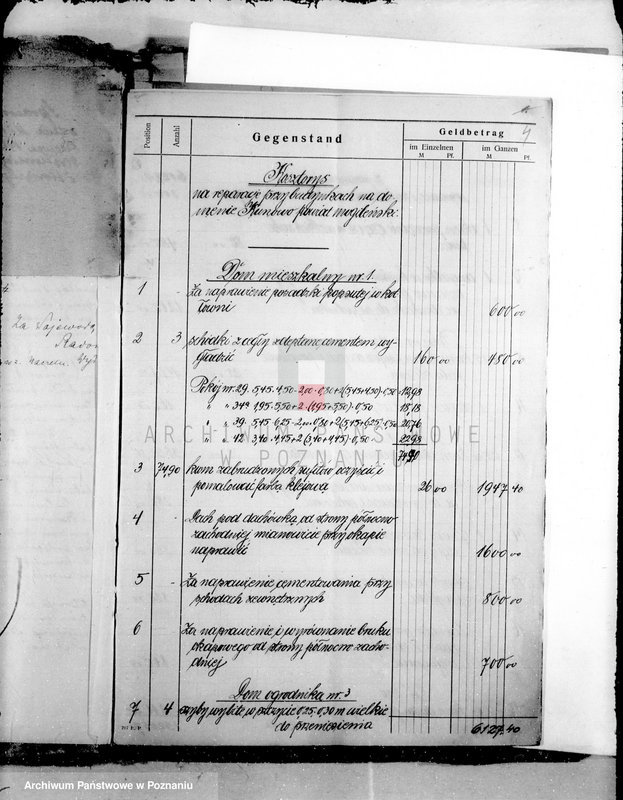 Archiwum Państwowe w Poznaniu
4
Position
Anzahl
Gegenstand
Geldbetrag
im Einzelnen
im Ganzen
M Pf.
M Pf.
Kosztorys
na reparacje przy budynkach na do-
menie Kunowo powiat mogileński.
Dom mieszkalny nr. 1
1 - Za naprawienie posadzki popsutej w kot-
łowni 600 00
2 3 schodki z cegły zdeptane cementem wy-
gładzić 160 00 450 00
Pokój nr. 29. 5,45 · 4,50 - 2,00 · 0,80 + 2(5,45+4,50) · 0,50 = 12,98
" " 34a 1,95 · 5,50 + 2 · (1,95+5,50) · 0,50 18,18
" " 39. 5,45 · 6,25 - 2,00 · 0,80 + 2(5,45+6,25) · 0,50 20,76
" " 42 3,40 · 4,45 + 2(3,40+4,45) · 0,50 22,98
74,90
ARCHIWUM PAŃSTWOWE
W POZNANIU
3 74,90 kwm zabrudzonych sufitów oczyścić i
pomalować farbą klejową 26 00 1947 40
4 - Dach pod dachówką od strony północno
zachodniej mianowicie przy okapie
naprawić 1600 00
5 - Za naprawienie cementowania przy
schodach zewnętrznych 800 00
6 Za naprawienie i wyrównanie bruku
okapowego od strony północno zacho-
dniej 700 00
Dom ogrodnika nr. 3
7 4 szyby wybite w szczycie 0,25 · 0,30 m wielkie
do przeniesienia 6127,40
Za Wojewodę
Archiwum Państwowe w Poznaniu